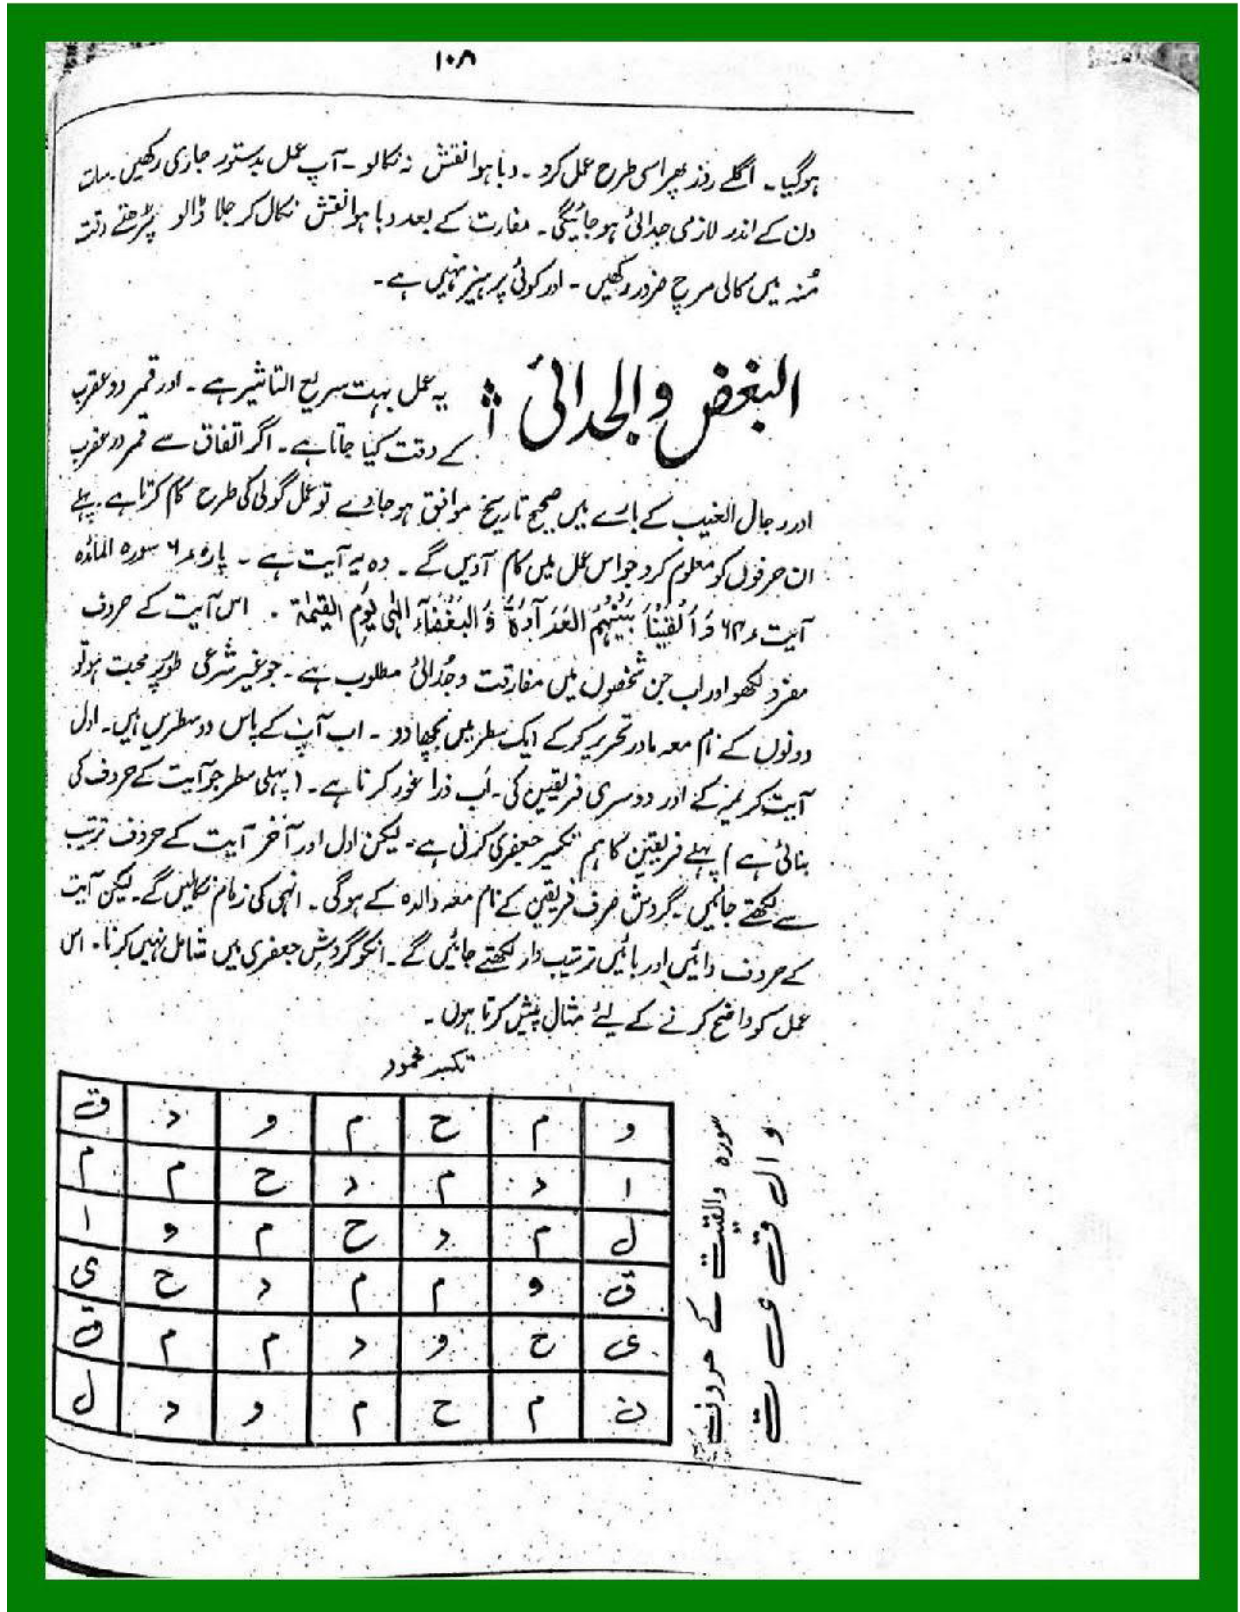 ۱۰۸
ہوگیا۔ اگلے روز پھر اسی طرح عمل کرو۔ دبا ہوا نقش نہ نکالو۔ آپ عمل بدستور جاری رکھیں۔ سات
دن کے اندر لازمی جدائی ہوجائیگی۔ مفارت کے بعد دبا ہوا نقش نکال کر جلا ڈالو پڑھتے وقت
مُنہ میں کالی مرچ ضرور رکھیں۔ اور کوئی پرہیز نہیں ہے۔
البغض والجدائی
یہ عمل بہت سریع التاثیر ہے۔ اور قمر در عقرب
کے وقت کیا جاتا ہے۔ اگر اتفاق سے قمر در عقرب
اور رجال الغیب کے بارے میں صحیح تاریخ موافق ہوجاوے تو عمل گولی کی طرح کام کرتا ہے۔ پہلے
ان حرفوں کو معلوم کرو جو اس عمل میں کام آویں گے۔ وہ یہ آیت ہے۔ پارہ ۶ سورہ المائدہ
آیت ۶۴ وَاَلْقَیْنَا بَیْنَہُمُ العَدَاوَۃَ وَالبَغْضَآءَ اِلٰی یَوْمِ القِیٰمَۃ ۔ اس آیت کے حروف
مفرد لکھو اور اب جن شخصوں میں مفارقت وجُدائی مطلوب ہے۔ جو غیر شرعی طور پر محبت ہو تو
دونوں کے نام معہ مادر تحریر کرکے ایک سطر میں بچھا دو۔ اب آپ کے پاس دو سطریں ہیں۔ اول
آیت کریمہ کے اور دوسری فریقین کی۔ اب ذرا غور کرنا ہے۔ (پہلی سطر جو آیت کے حروف کی
بنائی ہے) پہلے فریقین کا ہم تکسیر جعفری کرنی ہے۔ لیکن اول اور آخر آیت کے حروف ترتیب
سے لکھتے جائیں۔ گردش صرف فریقین کے نام معہ والدہ کے ہوگی۔ انہی کی زمام نکالیں گے۔ لیکن آیت
کے حروف دائیں اور بائیں ترتیب وار لکھتے جائیں گے۔ انکو گردش جعفری میں شامل نہیں کرنا۔ اس
عمل کو واضح کرنے کے لئے مثال پیش کرتا ہوں۔
تکسیر محمود
و م ح م و د ق
ا د م د ح م م
ل م د ح م و ا
ق و م م د ح ی
ی ح و د م م ق
ن م ح م و د ل
سورہ والقیت کے حروف
و ال ق ی ت